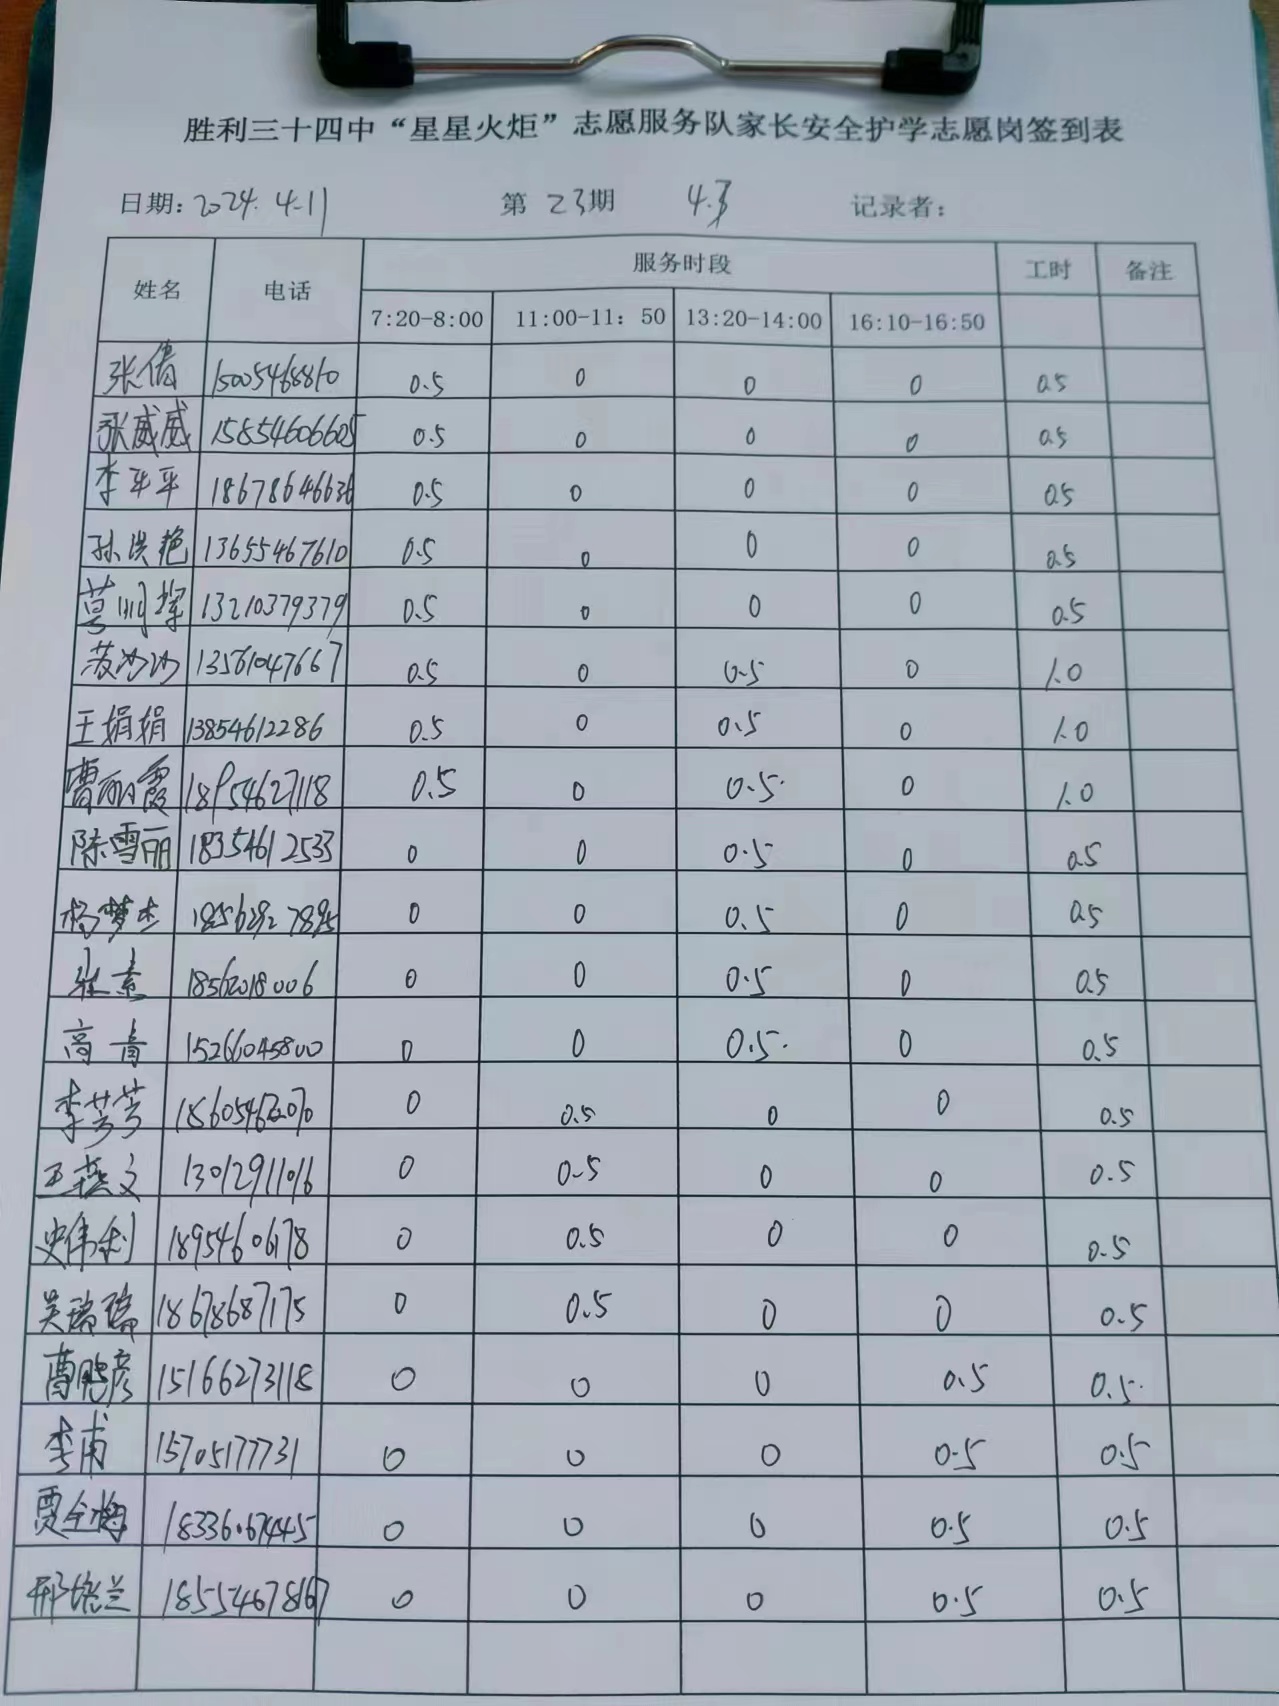 胜利三十四中“星星火炬”志愿服务队家长安全护学志愿岗签到表
日期: 2024. 4-11 第 23期 4.3 记录者:
姓名 电话 服务时段 工时 备注
7:20-8:00 11:00-11：50 13:20-14:00 16:10-16:50
张倩 15005468810 0.5 0 0 0 0.5
张威威 15854606605 0.5 0 0 0 0.5
李平平 18678646636 0.5 0 0 0 0.5
孙洪艳 13655467610 0.5 0 0 0 0.5
13210379379 0.5 0 0 0 0.5
苏沙沙 13561047667 0.5 0 0.5 0 1.0
王娟娟 13854612286 0.5 0 0.5 0 1.0
曹丽霞 18954627118 0.5 0 0.5 0 1.0
陈雪丽 18354612533 0 0 0.5 0 0.5
杨梦杰 0 0 0.5 0 0.5
张素 18562018006 0 0 0.5 0 0.5
高青 15266045800 0 0 0.5 0 0.5
李芳芳 0 0.5 0 0 0.5
王燕文 13012911016 0 0.5 0 0 0.5
史伟利 18954606178 0 0.5 0 0 0.5
吴瑞瑞 18678687175 0 0.5 0 0 0.5
曹鹏彦 15166273118 0 0 0 0.5 0.5
李甫 15705177731 0 0 0 0.5 0.5
贾全梅 18336067445 0 0 0 0.5 0.5
邢培兰 18554678167 0 0 0 0.5 0.5